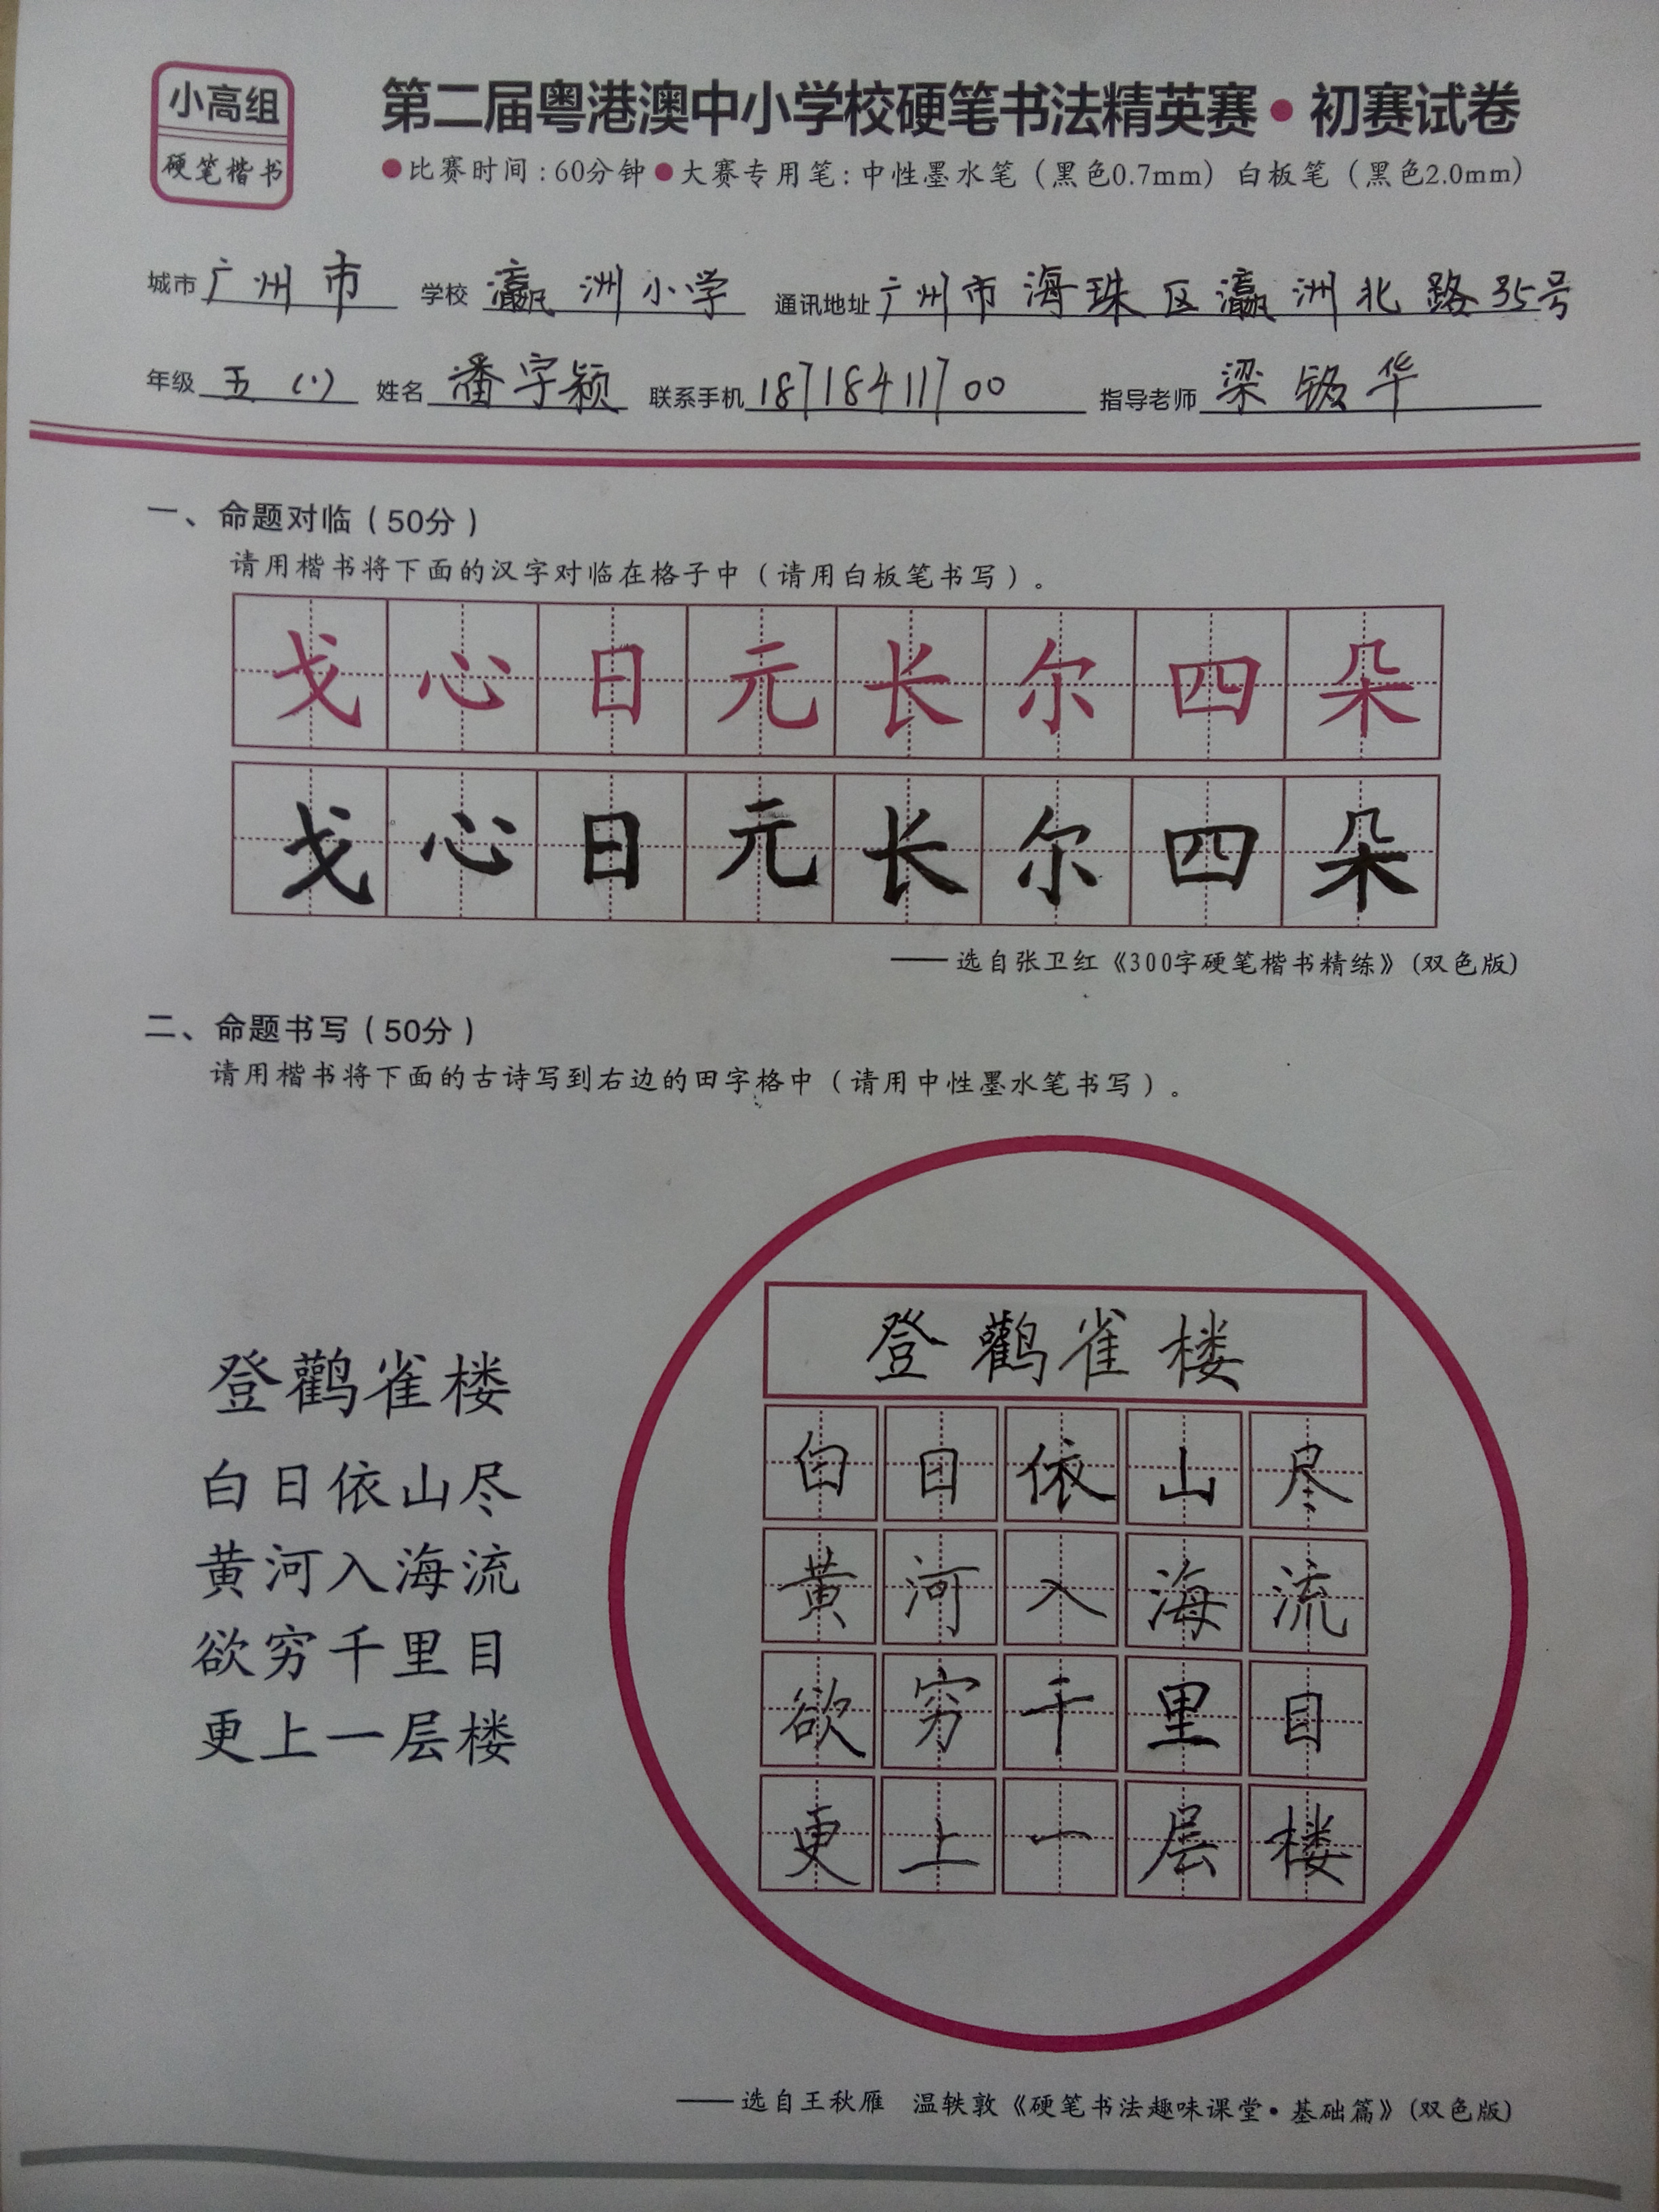 小高组
硬笔楷书
第二届粤港澳中小学校硬笔书法精英赛•初赛试卷
●比赛时间:60分钟●大赛专用笔:中性墨水笔(黑色0.7mm)白板笔(黑色2.0mm)
城市 广州市 学校 瀛洲小学 通讯地址 广州市海珠区瀛洲北路35号
年级 五(1) 姓名 潘字颖 联系手机 18718411700 指导老师 梁 华
一、命题对临(50分)
请用楷书将下面的汉字对临在格子中(请用白板笔书写)。
戈心日元长尔四朵
戈心日元长尔四朵
——选自张卫红《300字硬笔楷书精练》(双色版)
二、命题书写(50分)
请用楷书将下面的古诗写到右边的田字格中(请用中性墨水笔书写)。
登鹳雀楼
白日依山尽
黄河入海流
欲穷千里目
更上一层楼
登鹳雀楼
白日依山尽
黄河入海流
欲穷千里目
更上一层楼
——选自王秋雁 温轶敦《硬笔书法趣味课堂•基础篇》(双色版)